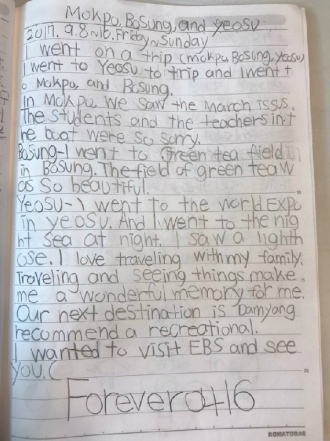 Mokpo, Bosung, and Yeosu
2017. 9.8~10. Friday~Sunday
I went on a trip (mokpo, Bosung, Yeosu)
I went to Yeosu to trip and I went t
o Mokpo, and Bosung.
In Mokpo we saw the March
The students and the teachers in t
he boat were so sorry.
Bosung-I went to Green tea field
in Bosung. The field of green tea w
as so beautiful.
Yeosu-I went to the world EXPO
in yeosu. And I went to the nig
ht sea at night. I saw a lighth
ouse. I love traveling with my family.
Traveling and seeing things make
me a wonderful memory for me.
Our next destination is Damyang
recommend a recreational.
I wanted to visit EBS and see
you.
Forever0416